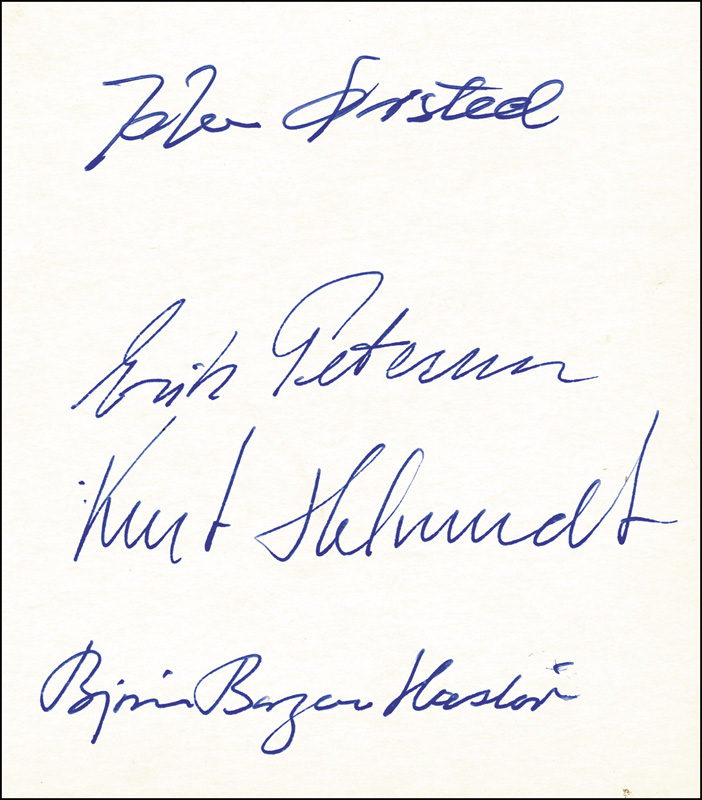 John Ørsted
Erik Petersen
Kurt Helmudt
Bjørn Borgen Hasløv